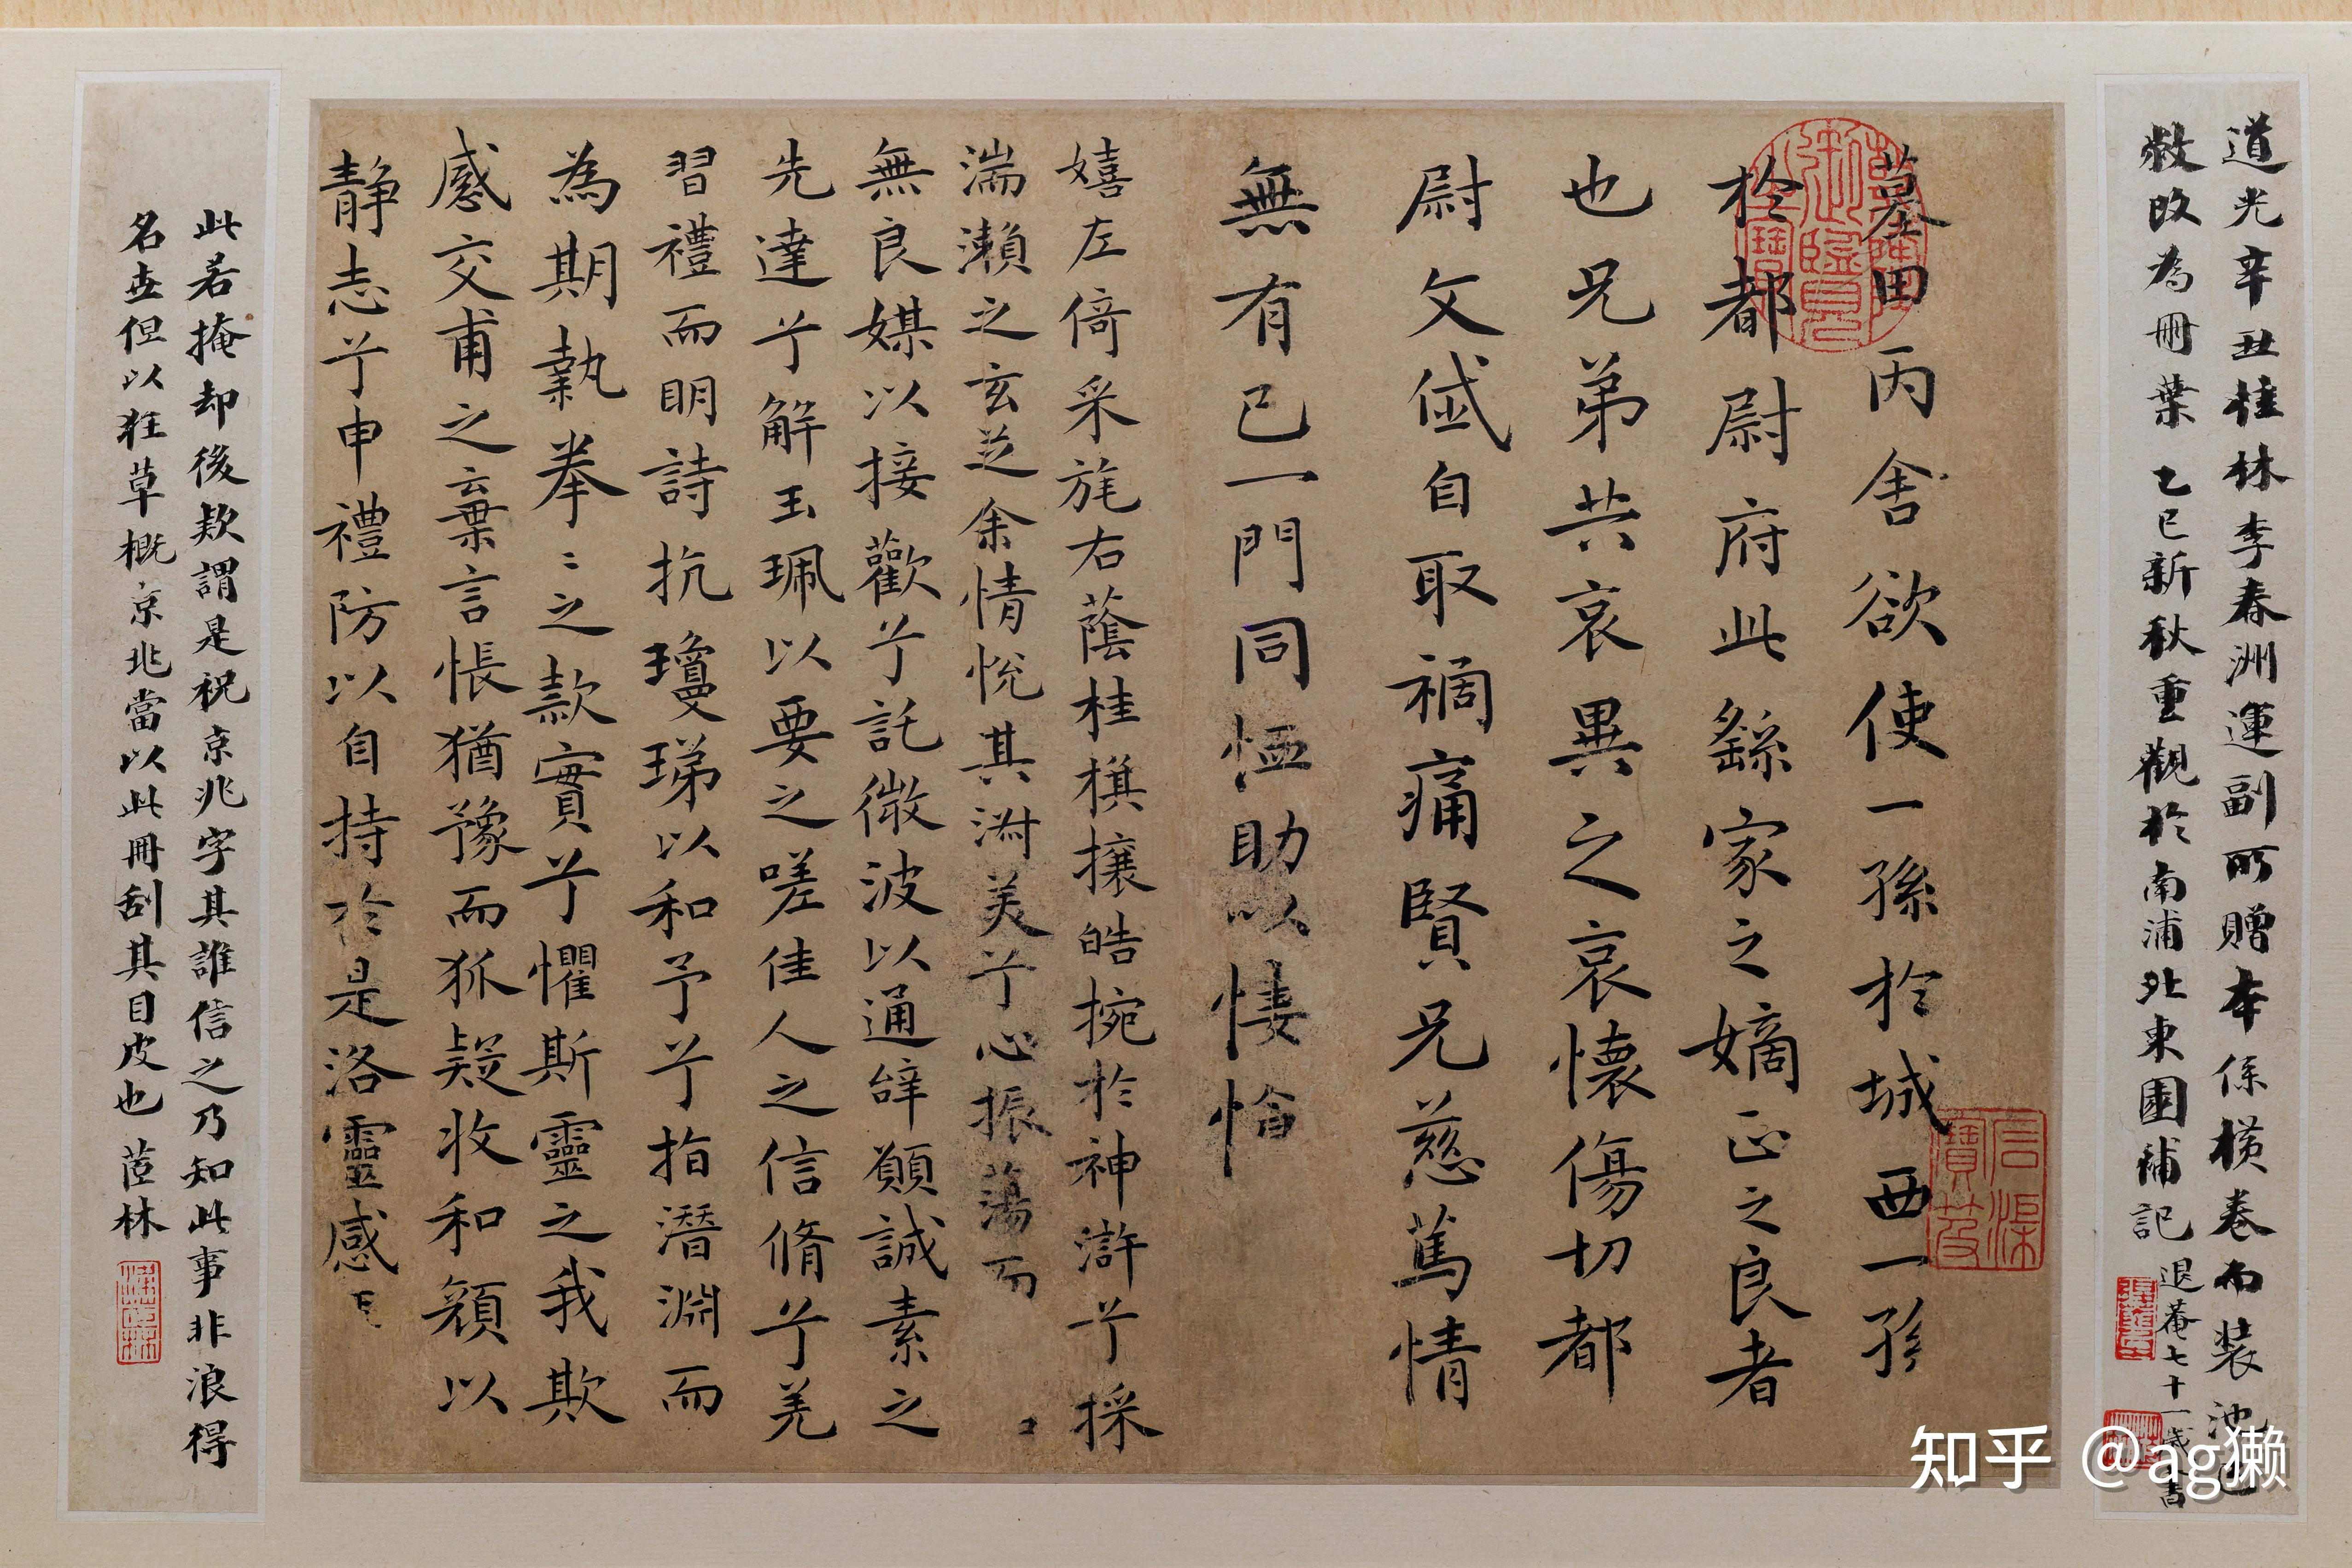 道光辛丑桂林李春洲運副所贈本係横卷而装池已
敝改為冊葉 乙巳新秋重觀於南浦北東園補記
退菴七十一歲書
墓田丙舍欲使一孫於城西一孫
於都尉府此繇家之嫡正之良者
也兄弟共哀異之哀懷傷切都
尉文岱自取禍痛賢兄慈篤情
無有已一門同恤助以悽愴
嬉左倚采旄右蔭桂棋攘皓捥於神滸兮採
湍瀨之玄芝余情悅其淑美兮心振蕩而
無良媒以接歡兮託微波以通辭願誠素之
先達兮解玉珮以要之嗟佳人之信脩兮羌
習禮而明詩抗瓊珶以和予兮指潛淵而
為期執拳〻之款實兮懼斯靈之我欺
感交甫之棄言悵猶豫而狐疑收和顏以
静志兮申禮防以自持於是洛靈感
此若掩却後款謂是祝京兆字其誰信之乃知此事非浪得
名世但以狂草概京兆當以此冊刮其目皮也 茝林
知乎 @ag獭